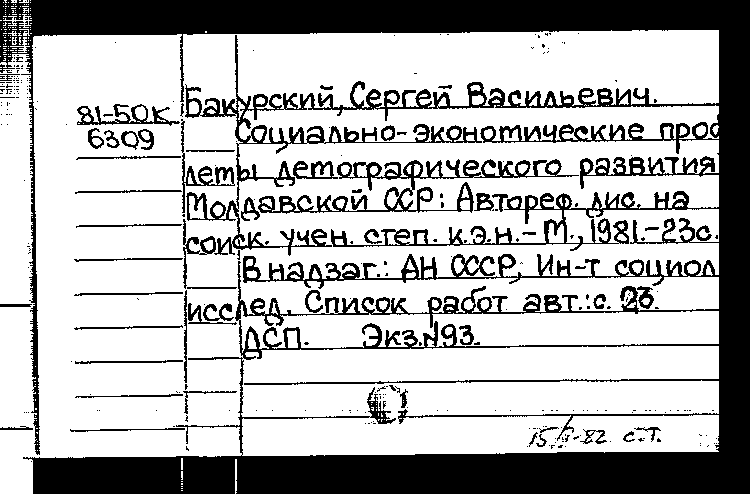 81-50к
6309
Бакурский, Сергей Васильевич.
Социально-экономические проб
лемы демографического развития
Молдавской ССР: Автореф. дис. на
соиск. учен. степ. к.э.н.-М., 1981.-23с.
В надзаг.: АН СССР, Ин-т социол
исслед. Список работ авт.: с. 23.
ДСП. Экз.№93.
-82 с.т.